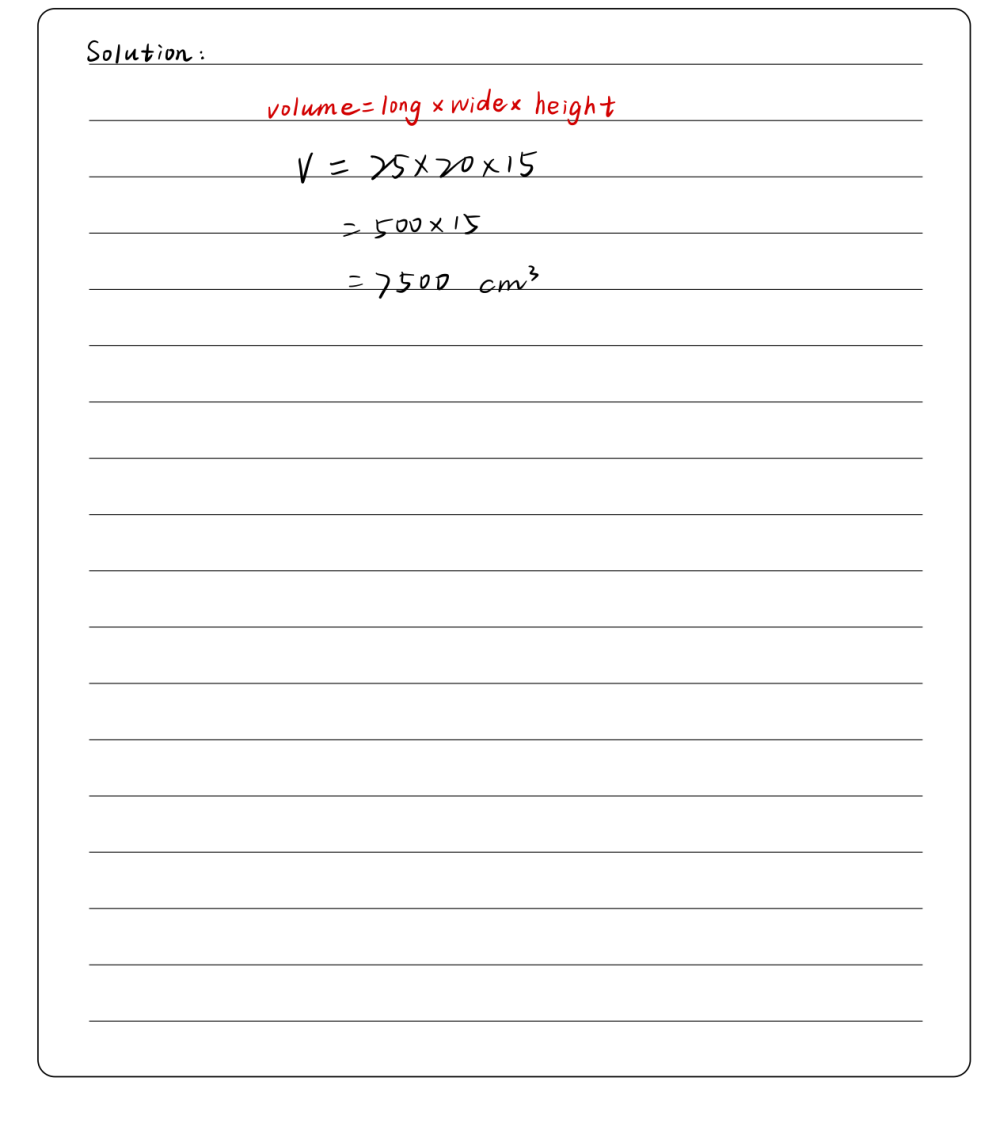 Solution:
volume=long×wide×height
V = 25×20×15
= 500×15
= 7500 cm³